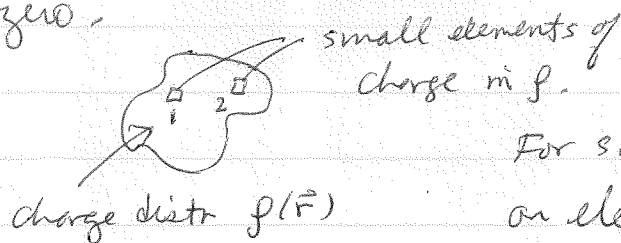 zero.
small elements of
charge in ρ.
1 2
For s
charge distr ρ(r⃗)
an ele